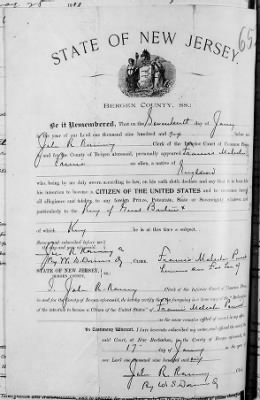 65
STATE OF NEW JERSEY,
BERGEN COUNTY, SS.:
Be it Remembered, That on the Seventeenth day of
in the year of our Lord one thousand nine hundred and six before me
John R. Ramsey Clerk of the Inferior Court of Common Pleas
in and for the County of Bergen aforesaid, personally appeared Francis Malcolm
an alien, a native of England
who, being by me duly sworn according to law, on his oath doth declare and say that it is
his intention to become a CITIZEN OF THE UNITED STATES and to renounce forever
all allegiance and fidelity to any foreign Prince, Potentate, State or Sovereignty whatever, and
particularly to the King of Great Britain &
of which King he is at this time a subject.
Sworn and subscribed before me
John R. Ramsey
By W. S. Francis Malcolm
STATE OF NEW JERSEY,
BERGEN COUNTY,
I, John R. Ramsey Clerk of the Inferior Court of Common Pleas
in and for the County of Bergen aforesaid, do hereby certify the foregoing
of the intention to become a Citizen of the United States of Francis Malcolm
In Testimony Whereof, I have hereunto subscribed my name, and affixed the seal of
said Court, at New Barbadoes, in the County of Bergen, this
17 day of
our Lord one thousand nine hundred and six
John R. Ramsey
By W. S.